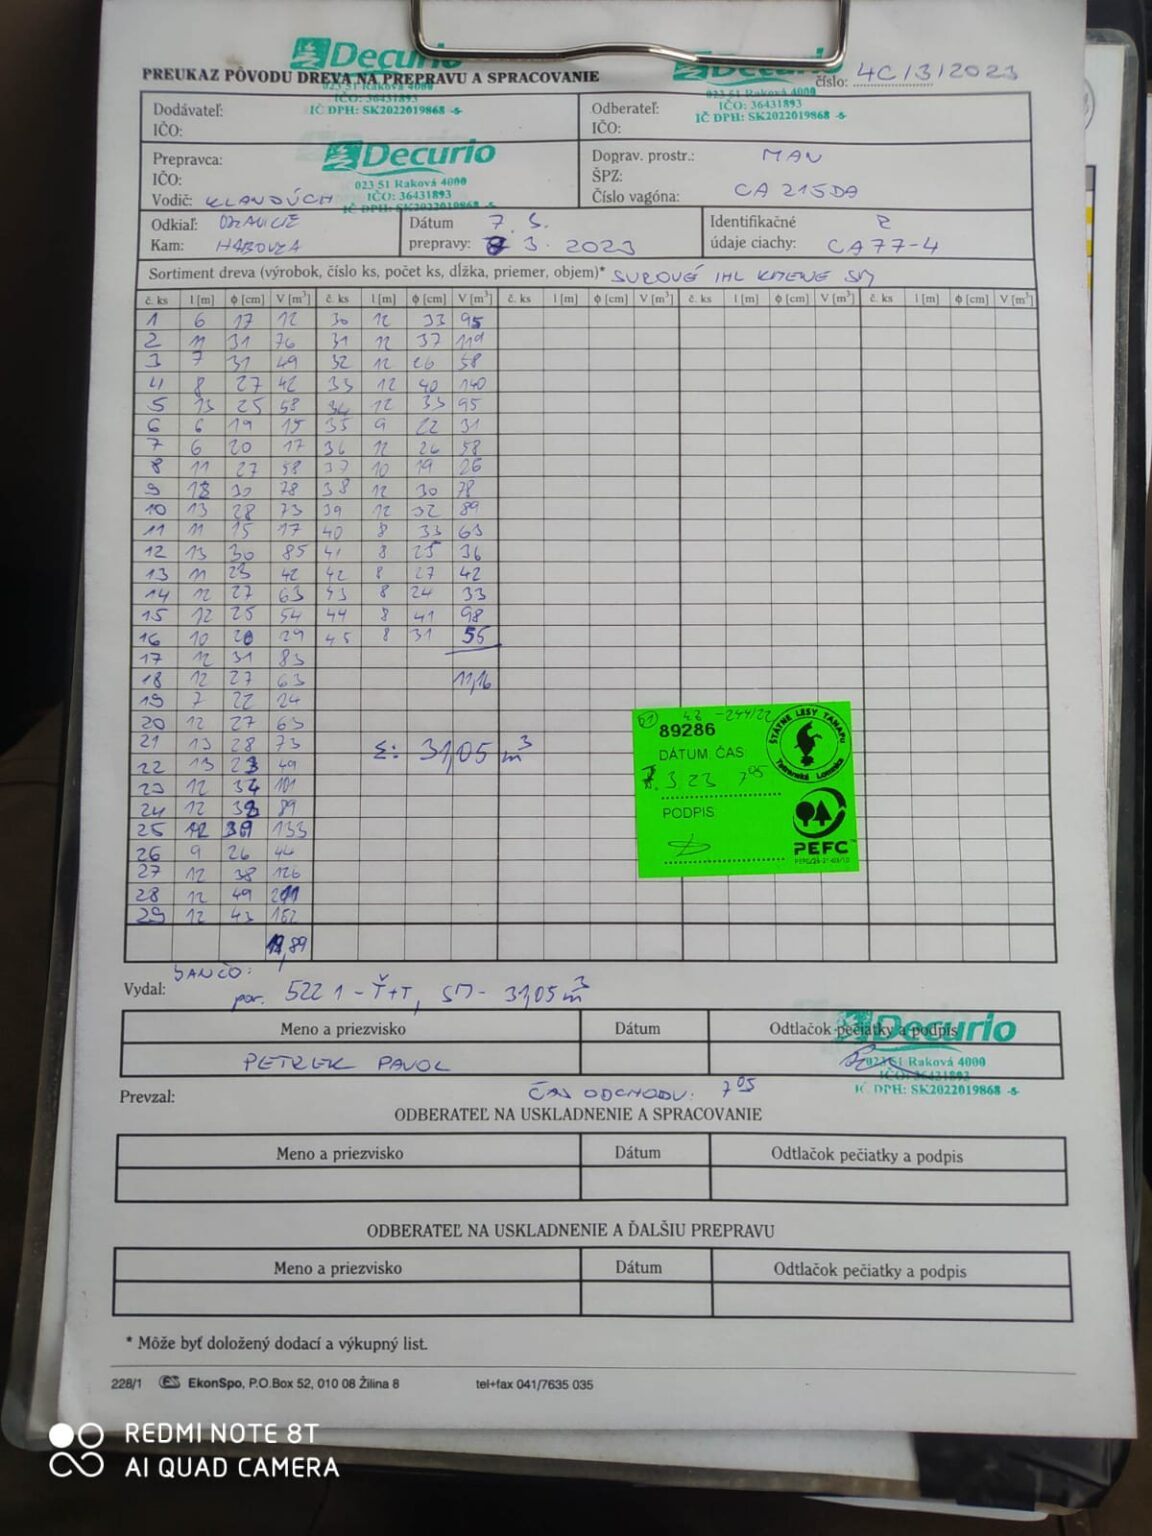 Decurio
PREUKAZ PÔVODU DREVA NA PREPRAVU A SPRACOVANIE
číslo: 4C/3/2023
023 51 Raková 4000
IČO: 36431893
IČ DPH: SK2022019868 -8-
IČO: 36431893
IČ DPH: SK2022019868 -8-
Dodávateľ:
IČO:
Odberateľ:
IČO:
Prepravca:
IČO:
Vodič: KLANDÚCH
Decurio
023 51 Raková 4000
IČO: 36431893
IČ DPH: SK2022019868 -8-
Doprav. prostr.: MAN
ŠPZ:
Číslo vagóna: CA 215DA
Odkiaľ: ORAVICE
Kam: HABOVKA
Dátum 7. 3.
prepravy: 3. 2023
Identifikačné
údaje ciachy: CA77-4
Sortiment dreva (výrobok, číslo ks, počet ks, dĺžka, priemer, objem)* SUROVÉ IHL KMENE SM
č. ks l [m] ϕ [cm] V [m³] č. ks l [m] ϕ [cm] V [m³] č. ks l [m] ϕ [cm] V [m³] č. ks l [m] ϕ [cm] V [m³] č. ks l [m] ϕ [cm] V [m³]
1 6 17 12 30 12 33 95
2 11 31 76 31 12 37 119
3 7 31 49 32 12 26 58
4 8 27 42 33 12 40 140
5 13 25 58 34 12 33 95
6 6 19 15 35 9 22 31
7 6 20 17 36 12 26 58
8 11 27 58 37 10 19 26
9 12 30 78 38 12 30 78
10 13 28 73 39 12 32 89
11 11 15 17 40 8 33 63
12 13 30 85 41 8 25 36
13 11 23 42 42 8 27 42
14 12 27 63 43 8 24 33
15 12 25 54 44 8 41 98
16 10 20 29 45 8 31 55
17 12 31 83
18 12 27 63 11,16
19 7 22 24
20 12 27 63
21 13 28 73
22 13 23 49
23 12 34 101
24 12 32 89
25 12 39 133
26 9 26 44
27 12 38 126
28 12 49 211
29 12 43 162
19,89
Σ: 31,05 m³
89286
DÁTUM, ČAS
7. 3 23 7⁰⁵
PODPIS
ŠTÁTNE LESY TANAPu
Tatranská Lomnica
PEFC
JANČO:
Vydal: por. 522 1 - Ť+T, SM - 31,05 m³
Meno a priezvisko Dátum Odtlačok pečiatky a podpis
PETREK PAVOL
Decurio
023 51 Raková 4000
IČO: 36431893
IČ DPH: SK2022019868 -8-
Prevzal: ČAS ODCHODU: 7⁰⁵
ODBERATEĽ NA USKLADNENIE A SPRACOVANIE
Meno a priezvisko Dátum Odtlačok pečiatky a podpis
ODBERATEĽ NA USKLADNENIE A ĎALŠIU PREPRAVU
Meno a priezvisko Dátum Odtlačok pečiatky a podpis
* Môže byť doložený dodací a výkupný list.
228/1 EkonSpo, P.O.Box 52, 010 08 Žilina 8 tel+fax 041/7635 035
REDMI NOTE 8T
AI QUAD CAMERA